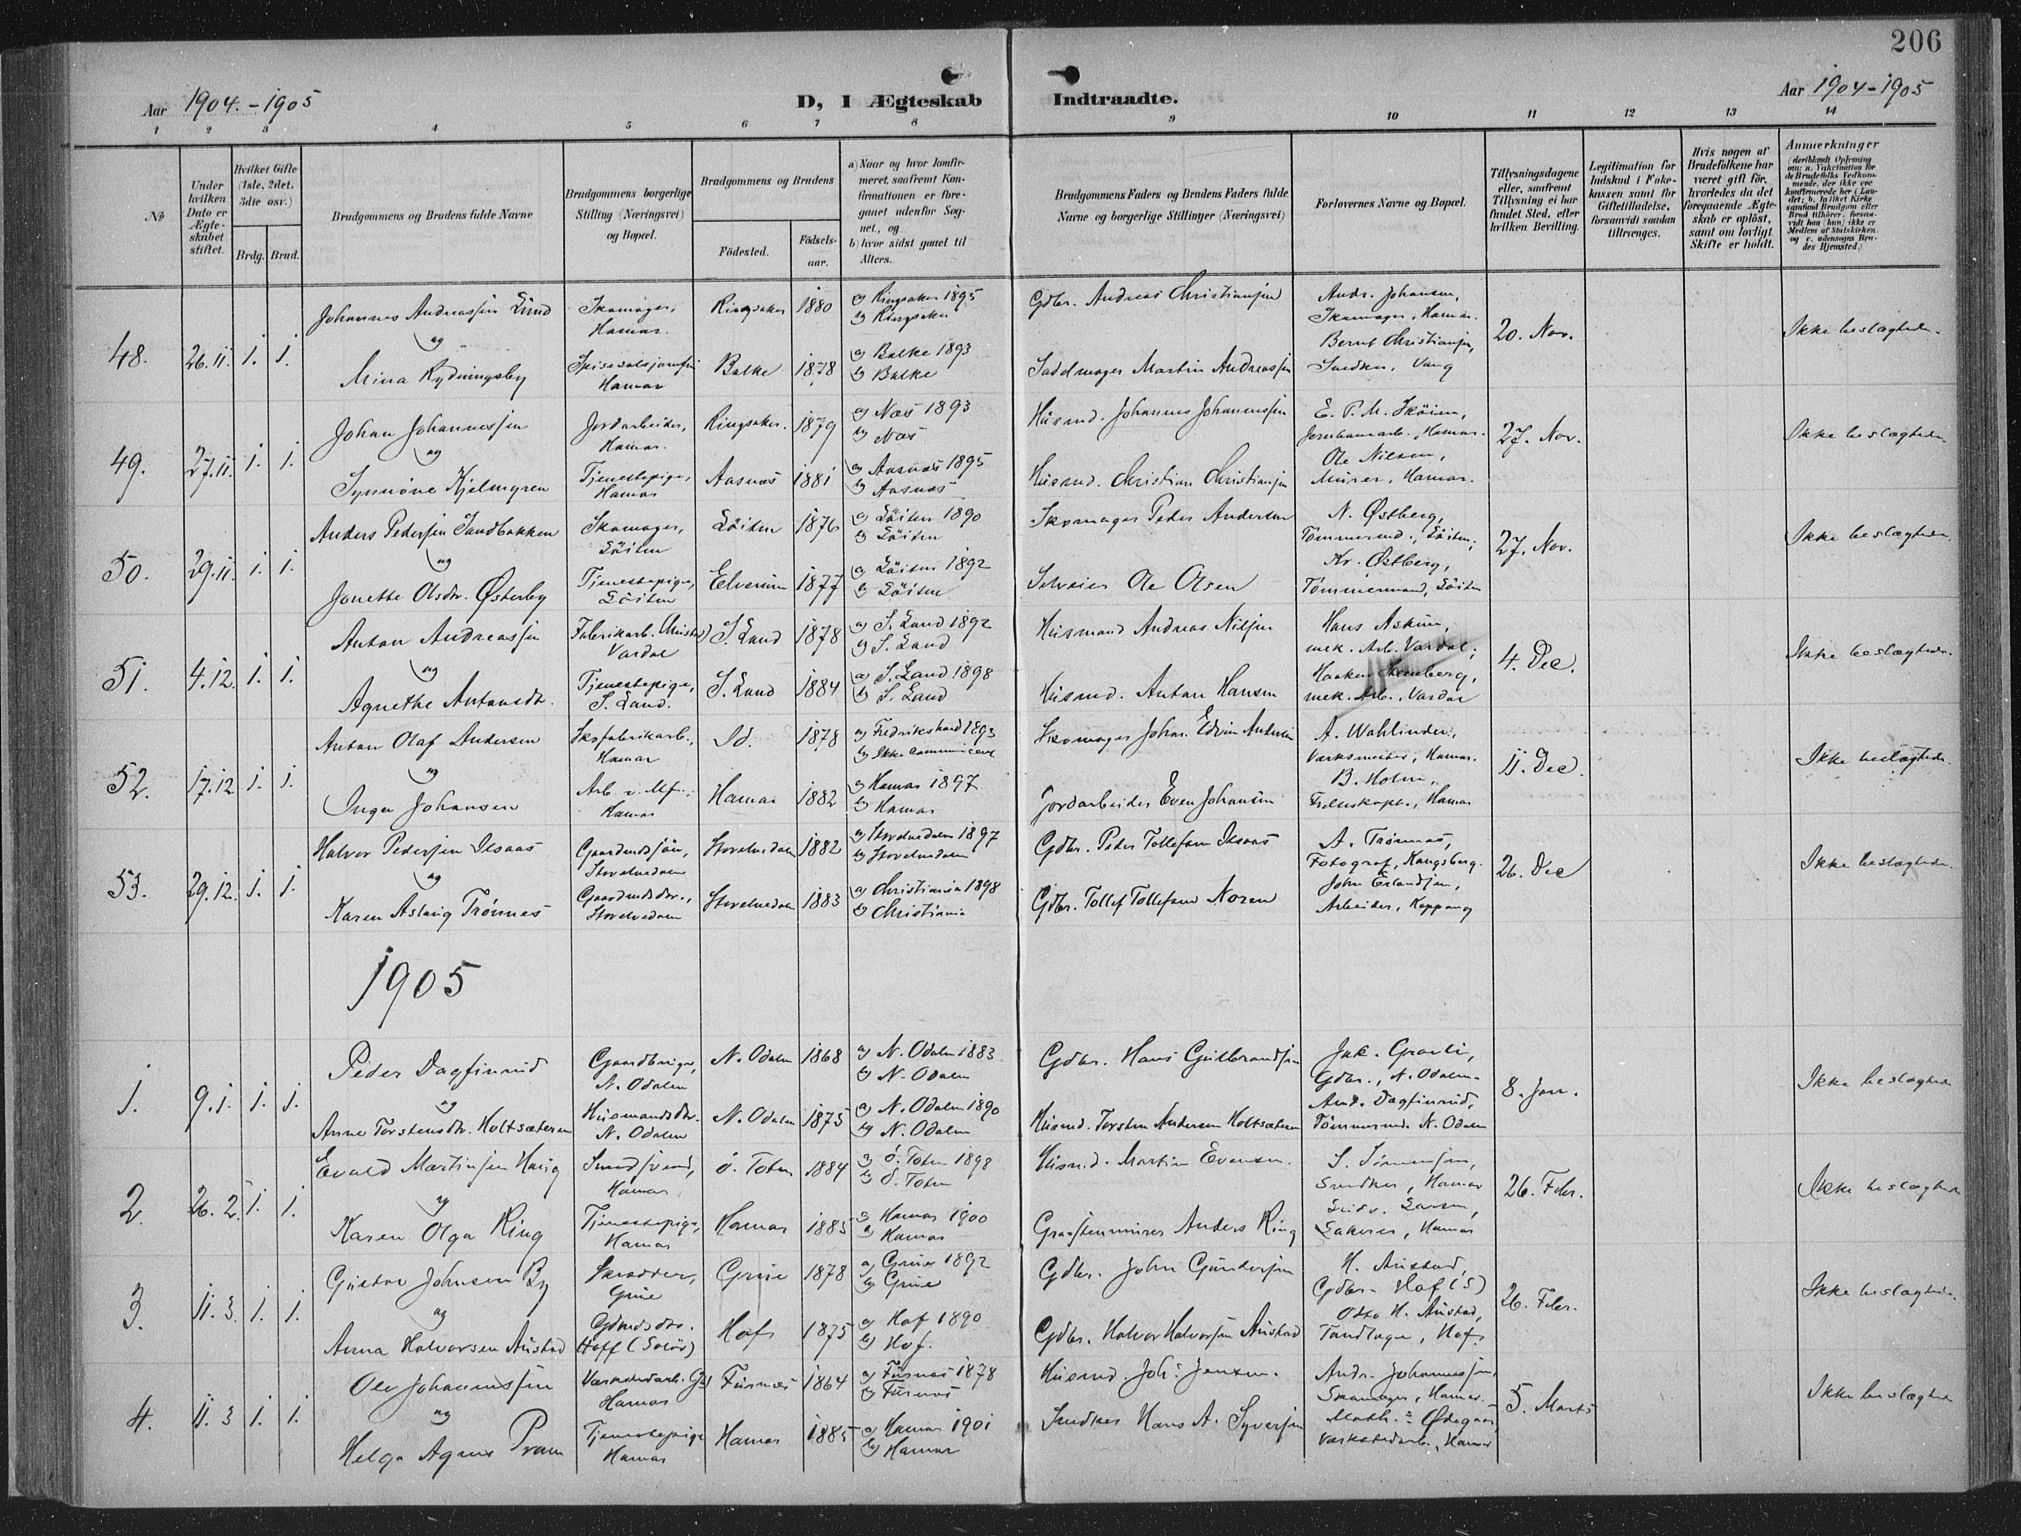 206
Aar 1904.-1905
D, I Ægteskab Indtraadte.
Aar 1904-1905
1 2 3 4 5 6 7 8 9 10 11 12 13 14
No
Under hvilken Dato er Ægteskabet stiftet.
Hvilket Gifte (1ste, 2det, 3die osv.)
Brdg. Brud.
Brudgommens og Brudens fulde Navne
Brudgommens borgerlige Stilling (Næringsvei) og Bopæl.
Brudgommens og Brudens
Fødested.
Fødselsaar.
a) Naar og hvor konfirmeret, saafremt Konfirmationen er foregaaet udenfor Sognet, og
b) hvor sidst gaaet til Alters.
Brudgommens Faders og Brudens Faders fulde Navne og borgerlige Stillinger (Næringsvei)
Forlovernes Navne og Bopæl.
Tillysningsdagene eller, saafremt Tillysning ei har fundet Sted, efter hvilken Bevilling.
Legitimation for Indskud i Enkekassen samt for Giftetilladelse, forsaavidt saadan tiltrænges.
Hvis nogen af Brudefolkene har været gift før, hvorledes da det foregaaende Ægteskab er opløst, samt om lovligt Skifte er holdt.
Anmerkninger
48. 26.11. 1. 1.
Johannes Andreassen Lund Skomager, Hamar. Ringsaker 1880 a) Ringsaker 1895 b) Ringsaker Gdbr. Andreas Christiansen Andr. Johansen, Skomager, Hamar. 20. Nov. Ikke beslægtede.
og
Mina Rydningsby Hamar Balke 1878 a) Balke 1893 b) Balke Sadelmager Martin Andreassen Bernt Christiansen, Snedker, Vang
49. 27.11. 1. 1.
Johan Johannessen Jordarbeider, Hamar. Ringsaker. 1879 a) Næs 1893 b) Næs Husmd. Johannes Johannessen E. P. M. Skøien, Jernbanearb., Hamar. 27. Nov. Ikke beslægtede.
og
Synnøve Kjelmgren Tjenestepige, Hamar Aasnæs 1881 a) Aasnæs 1895 b) Aasnæs Husmd. Christian Christiansen Ole Nilsen, Murer, Hamar.
50. 29.11. 1. 1.
Anders Pedersen Sandbakken Skomager, Løiten Løiten 1876 a) Løiten 1890 b) Løiten Skomager Peder Andersen N. Østberg, Tømmermd., Løiten, 27. Nov. Ikke beslægtede.
og
Jonette Olsdr. Østerby Tjenestepige, Løiten Elverum 1877 a) Løiten 1892 b) Løiten Selveier Ole Olsen Kr. Østberg, Tømmermand, Løiten
51. 4.12. 1. 1.
Anton Andreassen Fabrikarb. Vardal S. Land 1878 a) S. Land 1892 b) S. Land Husmand Andreas Nilsen Hans Askim, mek. Arb. Vardal; 4. Dec. Ikke beslægtede.
og
Agnethe Antonsdr. Tjenestepige, S. Land. S. Land 1884 a) S. Land 1898 b) S. Land Husmd. Anton Hansen Haakon Steenberg, mek. Arb., Vardal
52. 17.12 1. 1.
Anton Olaf Andersen Skofabrikarb., Hamar Id. 1878 a) Fredrikshald 1893 b) Ikke communicert Skomager Johan Edvin Andersen A. Wahlinder, Værksmester, Hamar. 11. Dec. Ikke beslægtede.
og
Inga Johansen Hamar Hamar 1882 a) Hamar 1897 b) Hamar Jordarbeider Even Johansen B. Holm, Hamar
53. 29.12. 1. 1.
Halvor Pedersen Ilsaas Gaardmdssøn, Storelvedalen Storelvedalen 1882 a) Storelvedalen 1897 b) Storelvedalen Gdbr. Peder Tollefsen Ilsaas A. Trønnes, Fotograf, Kongsberg. 26. Dec Ikke beslægtede.
og
Karen Aslaug Trønnes Gaardmdsdtr., Storelvedalen Storelvedalen 1883 a) Christiania 1898 b) Christiania Gdbr. Tollef Tollefsen Noren John Erlandsen, Arbeider, Koppang
1905
1. 9.1. 1. 1.
Peder Dagfinrud Gaardbruger, N. Odalen N. Odalen 1868 a) N. Odalen 1883 b) N. Odalen Gdbr. Hans Gulbrandsen Jak. Gravli, Gdbr., N. Odalen. 8. Jan. Ikke beslægtede
og
Anne Torstensdr. Holtsæteren Husmandsdtr. N. Odalen N. Odalen 1875 a) N. Odalen 1890 b) N. Odalen Husmd. Torsten Andersen Holtsæteren And. Dagfinrud, Tømmermd. N. Odalen
2. 26.2. 1. 1.
Evald Martinsen Haug Smedsvend, Hamar Ø. Toten 1884 a) Ø. Toten 1898 b) Ø. Toten Husmd. Martin Evensen. S. Simensen, Snedker, Hamar 26. Febr. Ikke beslægtede
og
Karen Olga Ring Tjenestepige, Hamar Hamar 1885 a) Hamar 1900 b) Hamar Graastensmurer Anders Ring Larsen, Hamar
3. 11.3. 1. 1.
Gustav Johnsen By Skrædder, Grue Grue 1878 a) Grue 1892 b) Grue Gdbr. John Gundersen H. Austad, Gdbr. Hof (S) 26. Febr. Ikke beslægtede.
og
Anna Halvorsen Austad Gdmdsdtr. Hoff (Solør) Hof 1875 a) Hof 1890 b) Hof. Gdbr. Halvor Halvorsen Austad Otto H. Austad, Tandlæge, Hof.
4. 11.3 1. 1.
Ole Johannessen Værkstedarb. Hamar Furnæs 1864 a) Furnæs 1878 b) Furnæs Husmd. Joh. Jensen. Andr. Johannessen, Skomager, Hamar 5. Marts Ikke beslægtede
og
Helga Agnes Pram Tjenestepige Hamar Hamar 1885 a) Hamar 1901 b) Hamar Snedker Hans A. Syversen Math. Ødegaas, Værkstedarb., Hamar